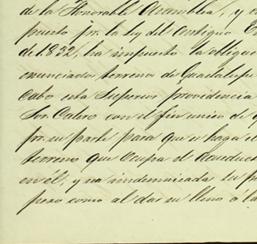 de la Honorable Asamblea, y
puesto por la ley del antiguo
de 1832, ha impuesto la
enunciado terreno de Guadalupe
Cabo esta Superior providencia
Sor. Calvo con el fin unico de
por su parte para que se haga el
terreno que ocupa el Acueduc
en él, y no indemnizada la
pero como al dar su lleno á la